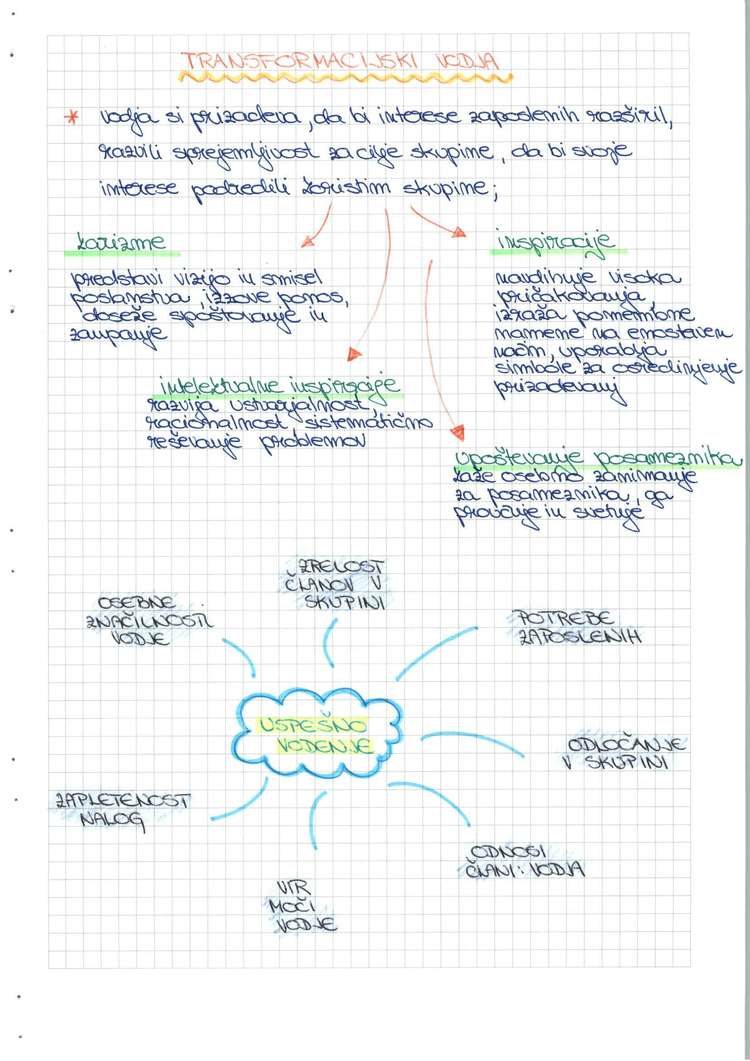 TRANSFORMACIJSKI VODJA
* vodja si prizadeva, da bi interese zaposlenih razširil,
razvili sprejemljivost za cilje skupine, da bi svoje
interese podredili koristim skupine;
karizme
predstavi vizijo in smisel
poslanstva, izzove ponos,
doseže spoštovanje in
zaupanje
inspiracije
navdihuje visoka
pričakovanja,
izraža pomembne
namene na enostaven
način, uporablja
simbole za osredinjenje
prizadevanj
intelektualne inspiracije
razvija ustvarjalnost,
racionalnost sistematično
reševanje problemov
upoštevanje posameznika
kaže osebno zanimanje
za posameznika, ga
proučuje in svetuje
ZRELOST
ČLANOV V
SKUPINI
OSEBNE
ZNAČILNOSTI
VODJE
POTREBE
ZAPOSLENIH
USPEŠNO
VODENJE
ODLOČANJE
V SKUPINI
ZAPLETENOST
NALOG
ODNOSI
ČLANI : VODJA
VIR
MOČI
VODJE